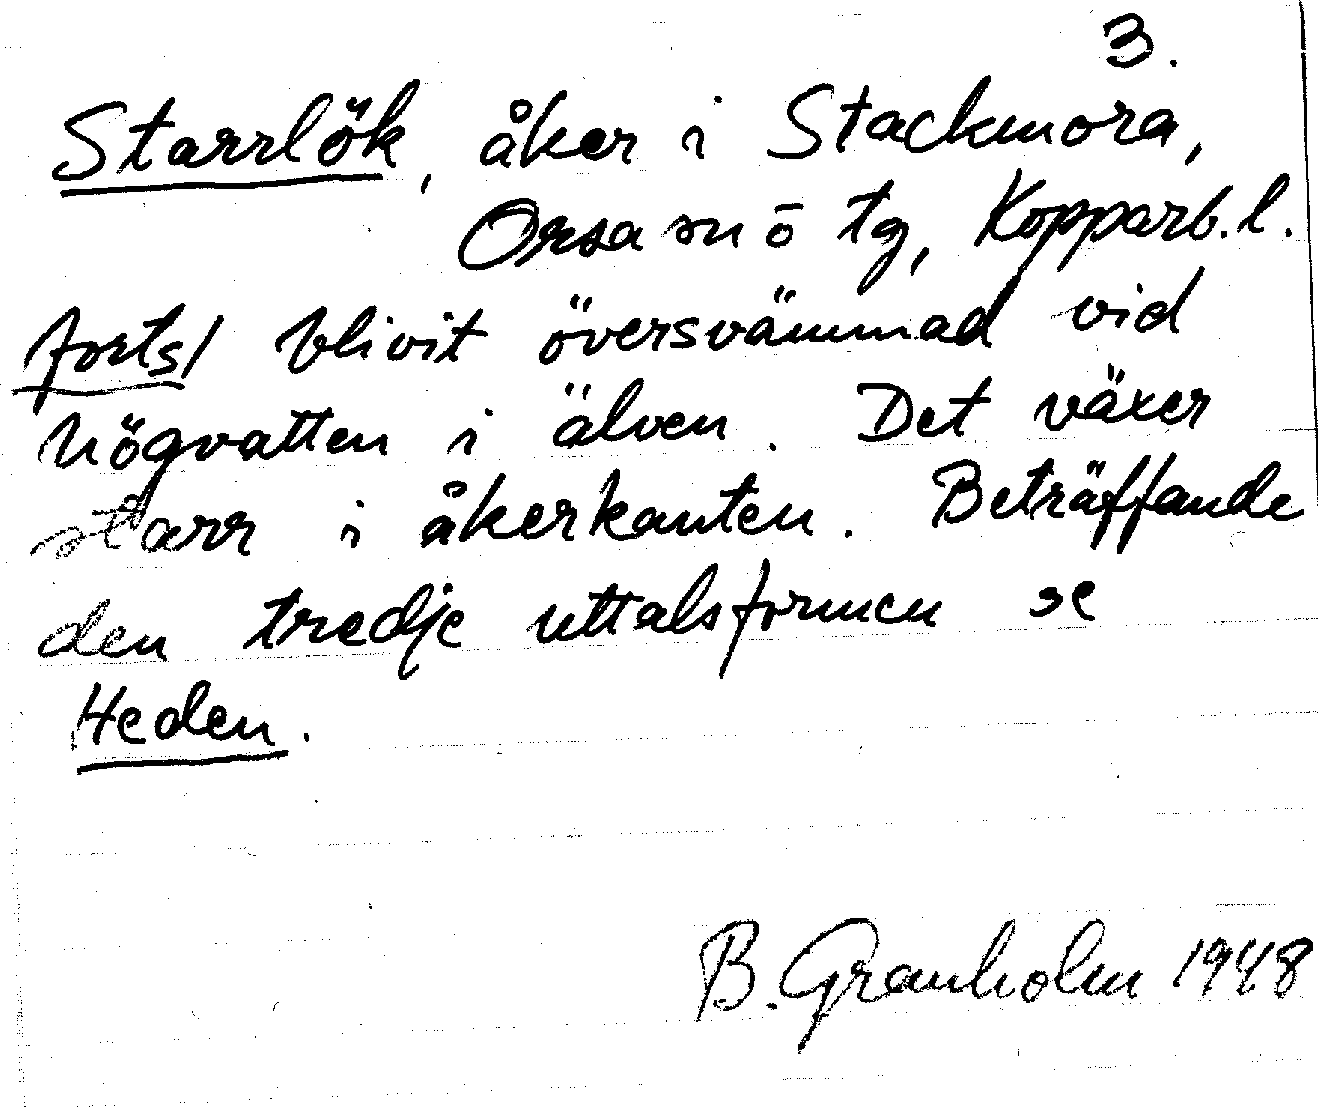 3.
Starrlök, åker i Stackmora,
Orsa sn ö tg, Kopparb. l.
forts/ blivit översvämmad vid
högvatten i älven. Det växer
starr i åkerkanten. Beträffande
den tredje uttalsformen se
Heden.
B. Granholm 1948